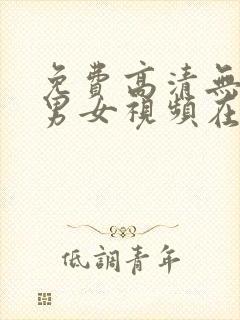 免費高清無
男女視頻在
低調青年